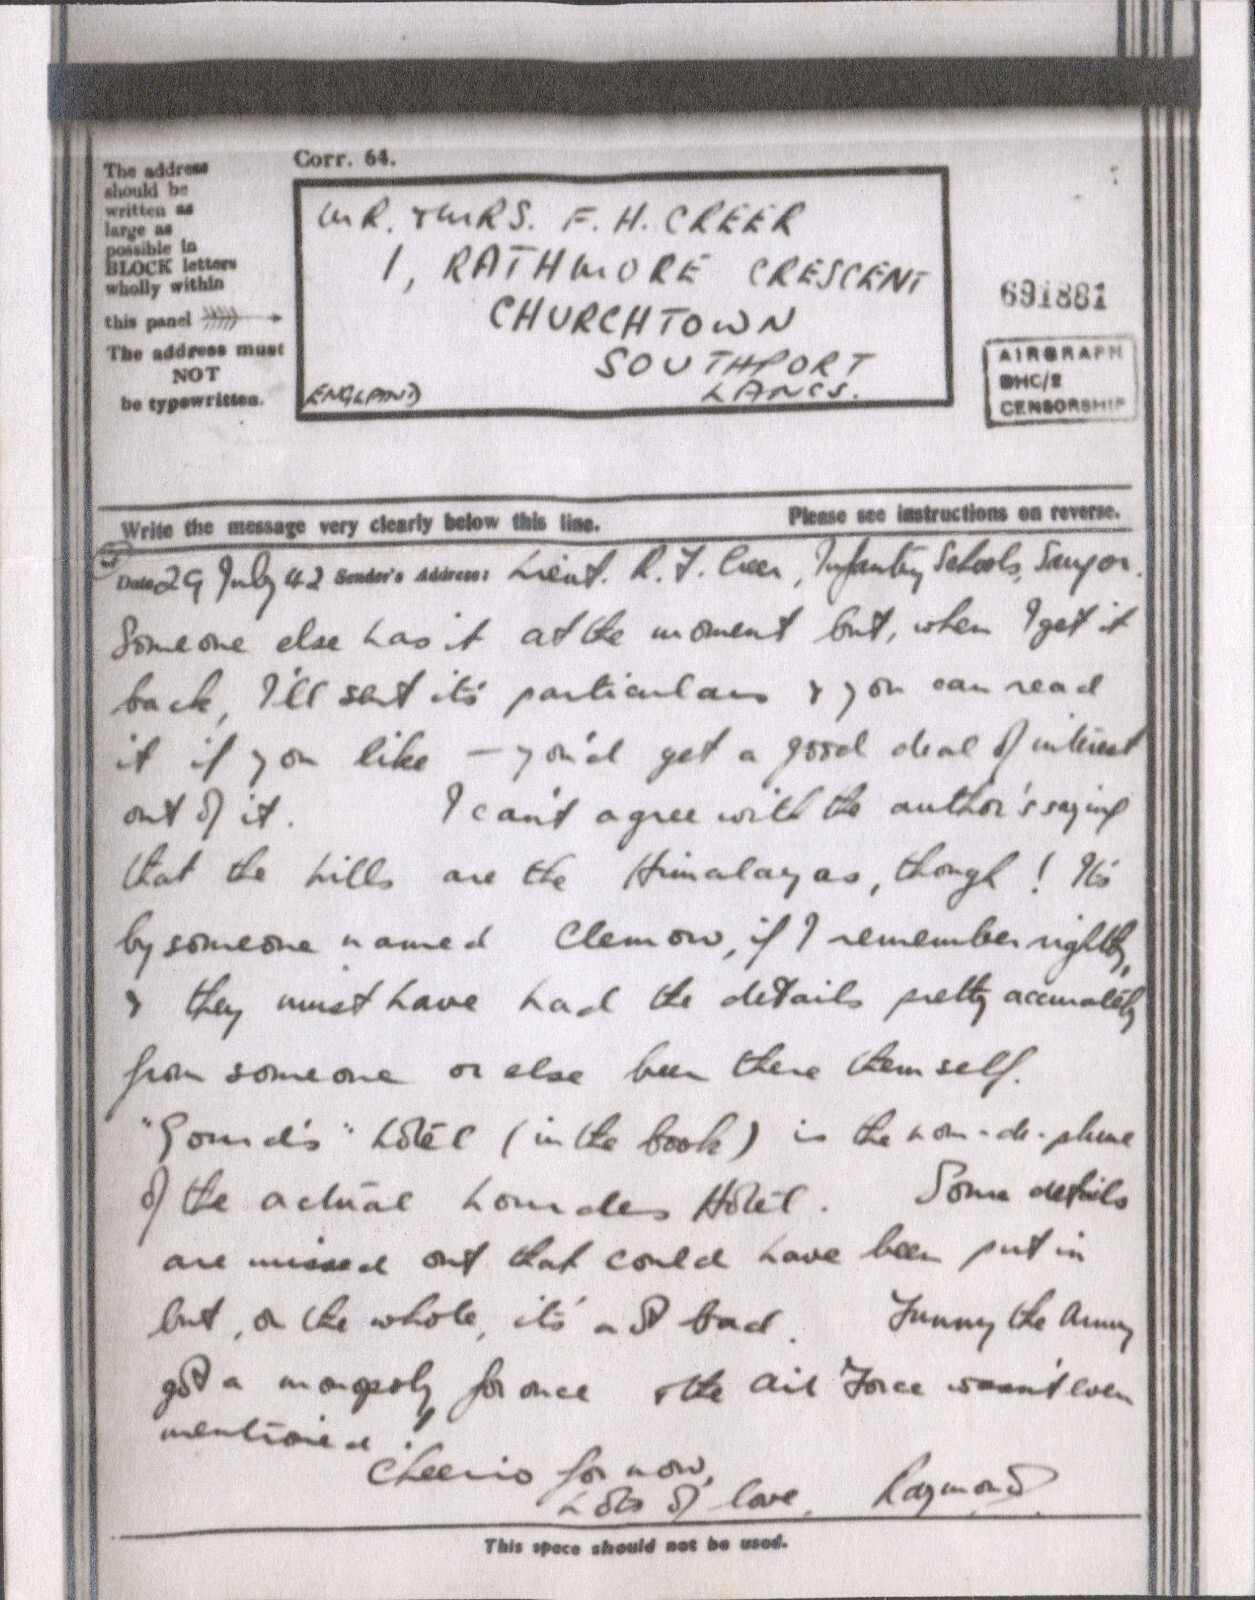 Corr. 64.
The address
should be
written as
large as
possible in
BLOCK letters
wholly within
this panel
The address must
NOT
be typewritten.
MR. & MRS. F. H. CREER
1, RATHMORE CRESCENT
CHURCHTOWN
SOUTHPORT
LANCS.
ENGLAND
691881
AIRGRAPH
BHC/2
CENSORSHIP
Write the message very clearly below this line.
Please see instructions on reverse.
Date 29 July 42 Sender's Address: Lieut. R. F. Creer, Infantry Schools, Saugor.
Someone else has it at the moment but, when I get it
back, I'll sent it's particulars & you can read
it if you like — you'd get a good deal of interest
out of it. I can't agree with the author's saying
that the hills are the Himalayas, though! It's
by someone named Clemow, if I remember rightly,
& they must have had the details pretty accurately
from someone or else been there themself.
"Gourd's" hotel (in the book) is the nom-de-plume
of the actual Lourdes Hotel. Some details
are missed out that could have been put in
but, on the whole, it's not bad. Funny the Army
got a monopoly for once & the Air Force wasn't even
mentioned.
Cheerio for now,
Lots of love, Raymond
This space should not be used.